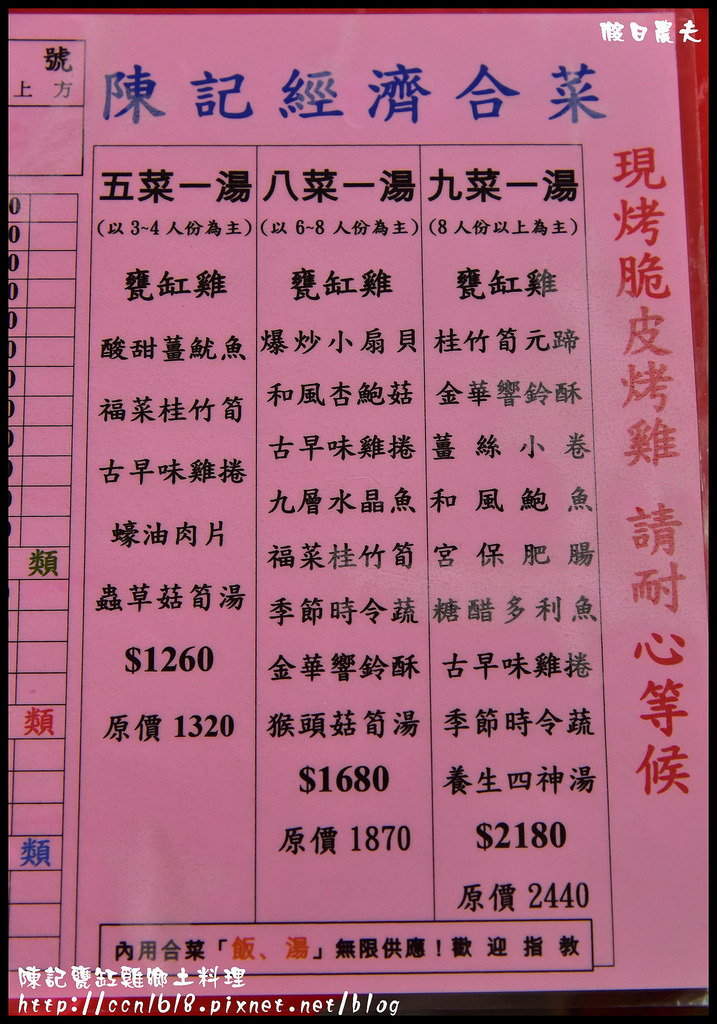 假日農夫
號
上方
陳記經濟合菜
五菜一湯
(以 3~4 人份為主)
甕缸雞
酸甜薑魷魚
福菜桂竹筍
古早味雞捲
蠔油肉片
蟲草菇筍湯
$1260
原價 1320
八菜一湯
(以 6~8 人份為主)
甕缸雞
爆炒小扇貝
和風杏鮑菇
古早味雞捲
九層水晶魚
福菜桂竹筍
季節時令蔬
金華響鈴酥
猴頭菇筍湯
$1680
原價 1870
九菜一湯
(8 人份以上為主)
甕缸雞
桂竹筍元蹄
金華響鈴酥
薑絲小卷
和風鮑魚
宮保肥腸
糖醋多利魚
古早味雞捲
季節時令蔬
養生四神湯
$2180
原價 2440
現烤脆皮烤雞 請耐心等候
類
類
類
內用合菜「飯、湯」無限供應！歡迎指教
陳記甕缸雞鄉土料理
http://ccn1618.pixnet.net/blog